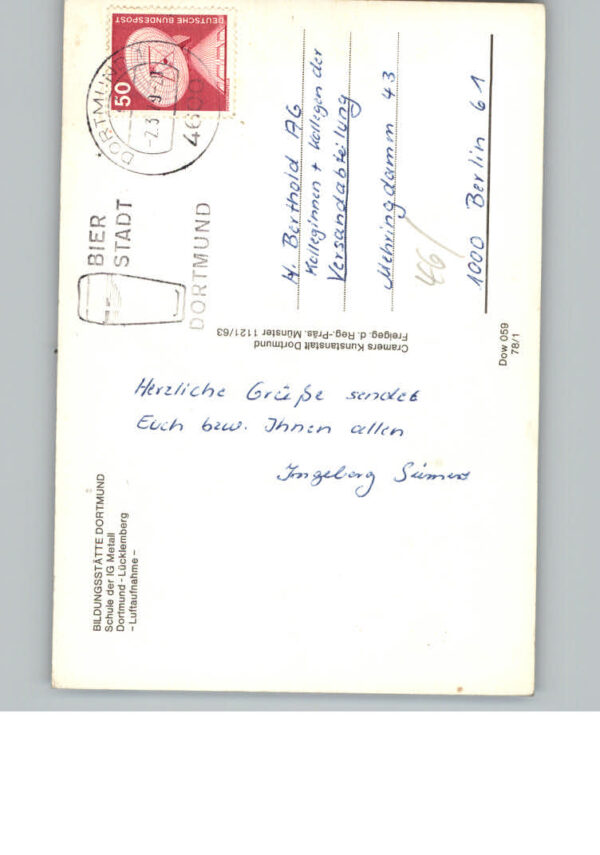 DEUTSCHE BUNDESPOST
50
DORTMUND
-2.3
4600
BIER
STADT
DORTMUND
H. Berthold AG
Kolleginnen + Kollegen der
Versandabteilung
Mehringdamm 43
46/
1000 Berlin 61
Cramers Kunstanstalt Dortmund
Freigeg. d. Reg.-Präs. Münster 1121/63
Dow 059
78/1
Herzliche Grüße sendet
Euch bzw. Ihnen allen
Ingeborg
BILDUNGSSTÄTTE DORTMUND
Schule der IG Metall
Dortmund - Lücklemberg
- Luftaufnahme -